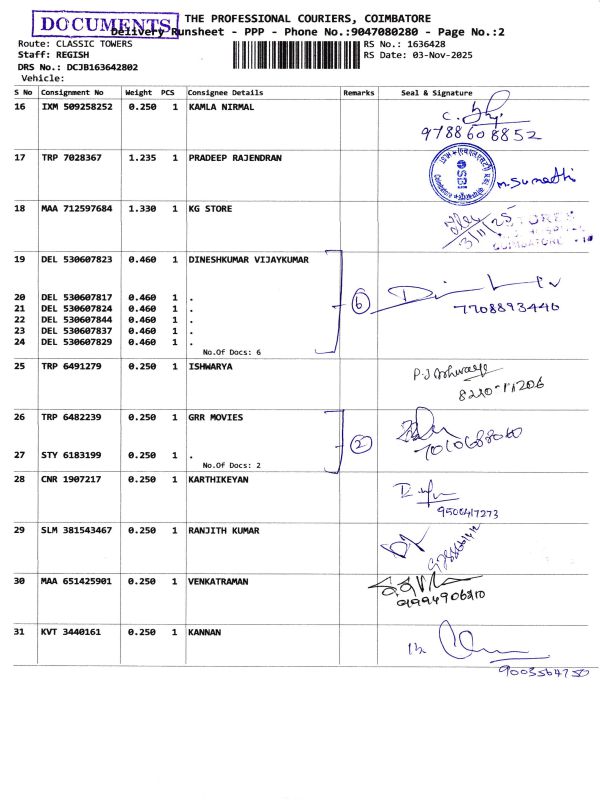 DOCUMENTS
THE PROFESSIONAL COURIERS, COIMBATORE
Delivery Runsheet - PPP - Phone No.:9047080280 - Page No.:2
Route: CLASSIC TOWERS
RS No.: 1636428
Staff: REGISH
RS Date: 03-Nov-2025
DRS No.: DCJB163642802
Vehicle:
S No Consignment No Weight PCS Consignee Details Remarks Seal & Signature
16 IXM 509258252 0.250 1 KAMLA NIRMAL
9788608852
17 TRP 7028367 1.235 1 PRADEEP RAJENDRAN
SBI
M. Sumathi
18 MAA 712597684 1.330 1 KG STORE
3/11/25
COIMBATORE
19 DEL 530607823 0.460 1 DINESHKUMAR VIJAYKUMAR
20 DEL 530607817 0.460 1 .
6
7708893440
21 DEL 530607824 0.460 1 .
22 DEL 530607844 0.460 1 .
23 DEL 530607837 0.460 1 .
24 DEL 530607829 0.460 1 .
No.Of Docs: 6
25 TRP 6491279 0.250 1 ISHWARYA
26 TRP 6482239 0.250 1 GRR MOVIES
2
7010688060
27 STY 6183199 0.250 1 .
No.Of Docs: 2
28 CNR 1907217 0.250 1 KARTHIKEYAN
9506417273
29 SLM 381543467 0.250 1 RANJITH KUMAR
30 MAA 651425901 0.250 1 VENKATRAMAN
31 KVT 3440161 0.250 1 KANNAN
9003564750